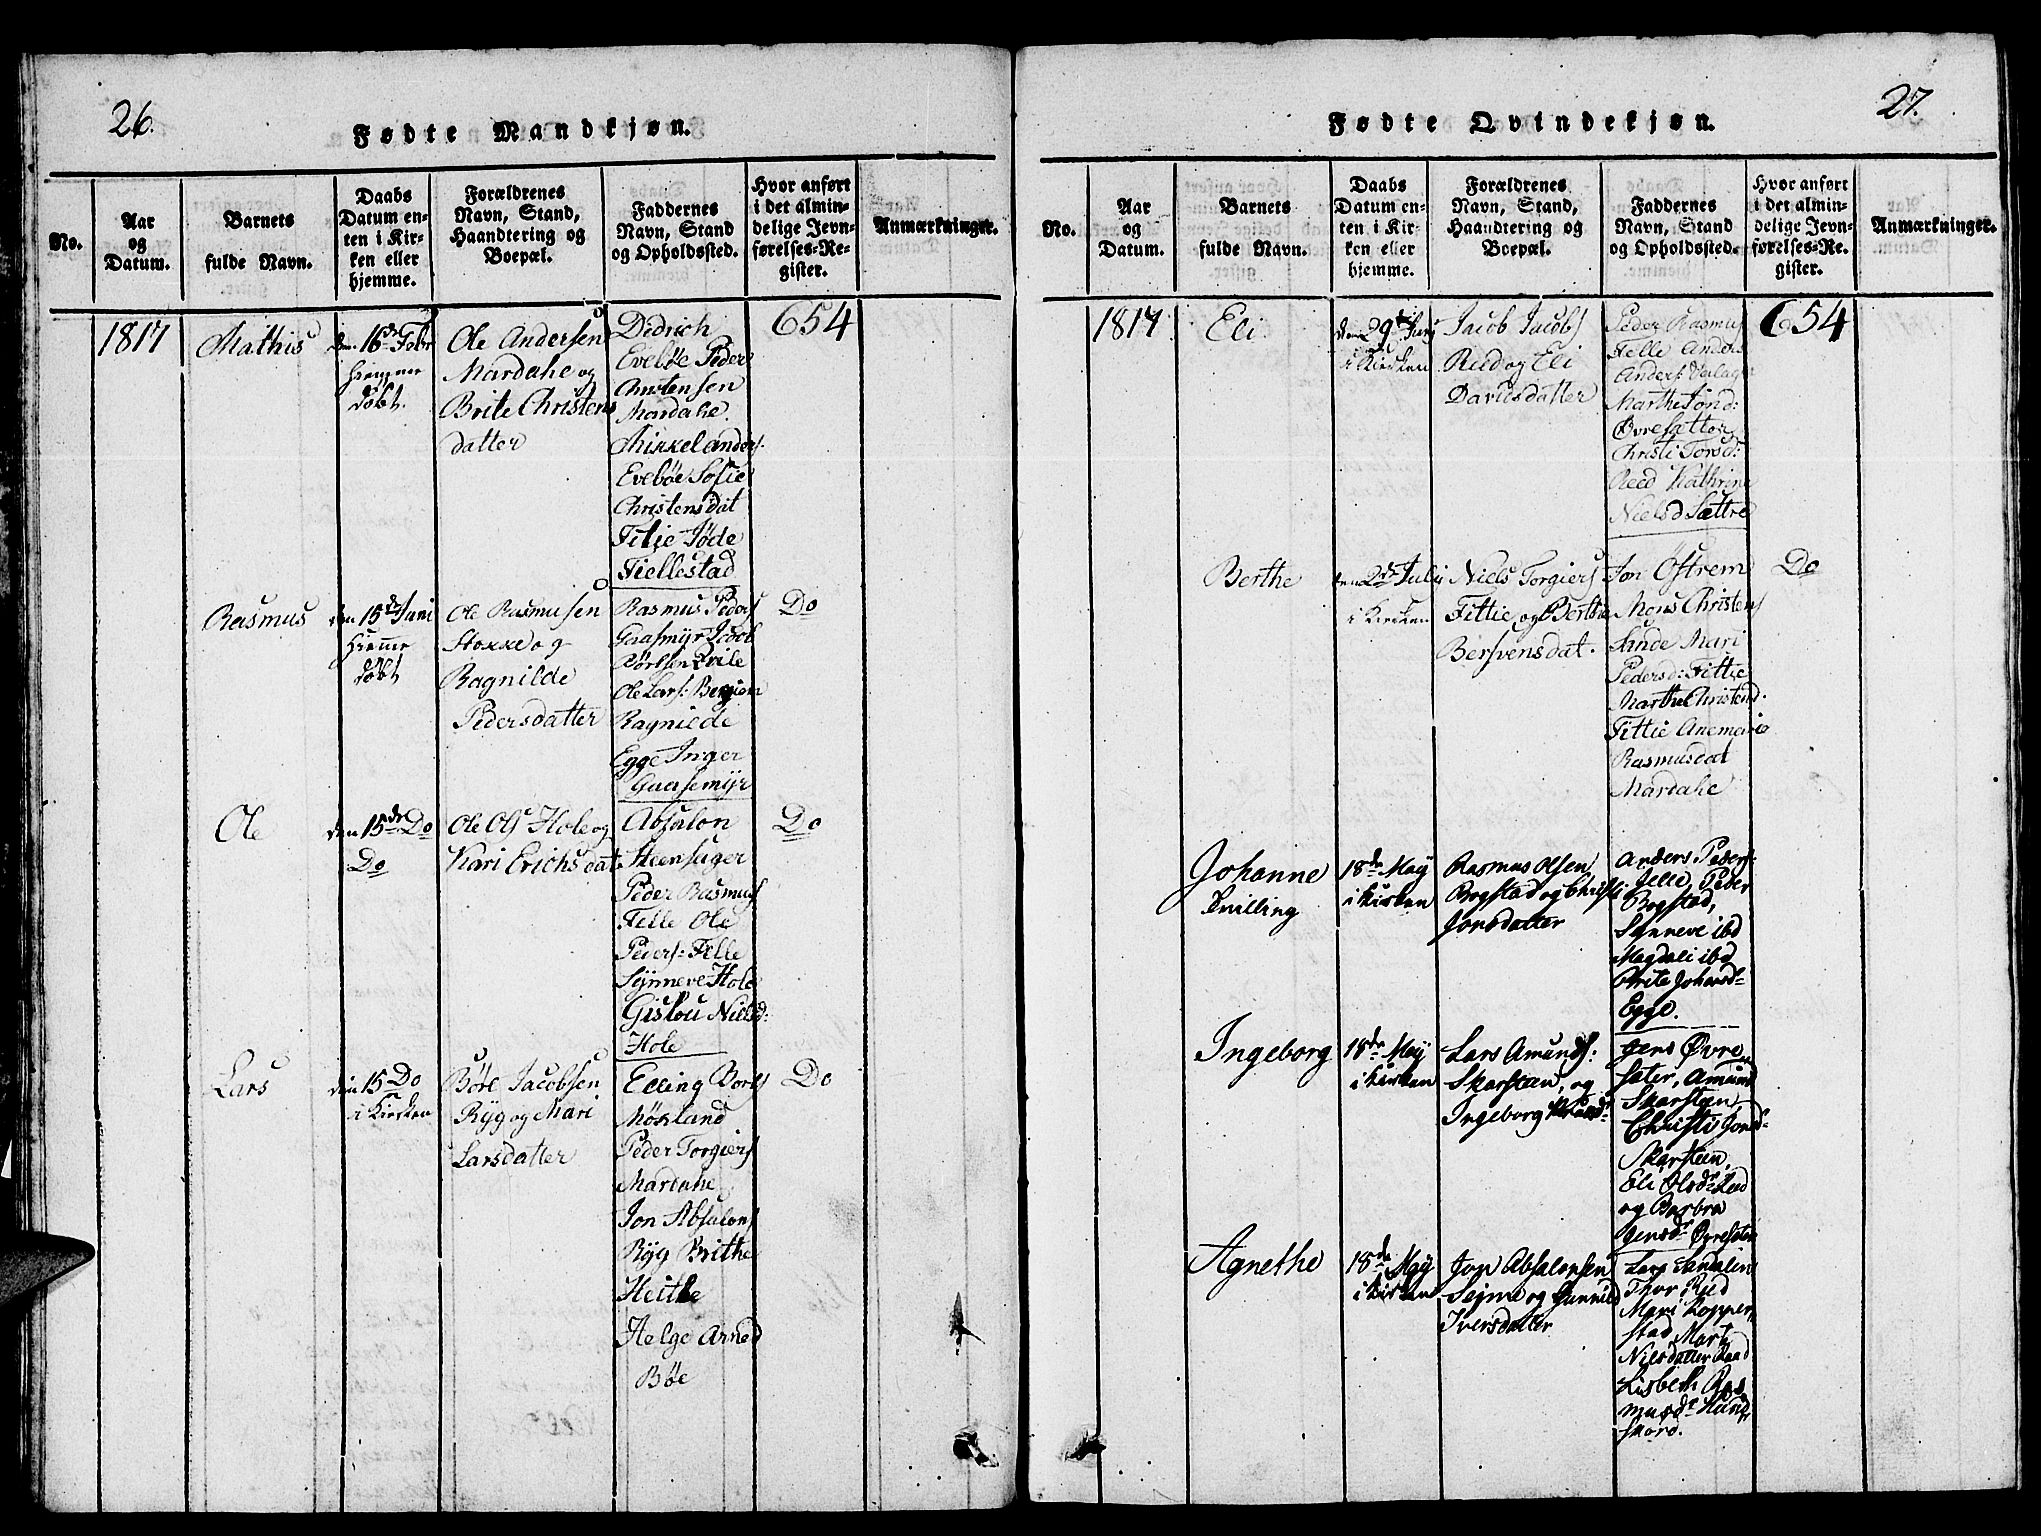 26.
Fødte Mandkjøn.
No.
Aar
og
Datum.
Barnets
fulde Navn.
Daabs
Datum en-
ten i Kir-
ken eller
hjemme.
Forældrenes
Navn, Stand,
Haandtering og
Boepæl.
Faddernes
Navn, Stand
og Opholdssted.
Hvor anført
i det almin-
delige Jevn-
førelses-Re-
gister.
Anmærkninger.
1817
Mathis
16de Febr
hiemme
døbt.
Ole Andersen
Mardahe og
Brite Christens
datter
Didrich
Evebøe Peder
Christensen
Mardahe
Mikkel Anders:
Evebøe Sofie
Christensdat
Fitie Jøde
Fiellestad
654
Rasmus
den 15de Juni
hiemme
døbt
Ole Rasmusen
Stokke og
Ragnilde
Pedersdatter
Rasmus Peders
Gaasmyr Jacob
Ole Lars: Bergiem
Ragnilde
Egge Inger
Gaasemyr
Do
Ole
den 15de Do
Do
Ole Ols Hole og
Kari Erichsdat
Absalon
Steensager
Peder Rasmus
Felle Ole
Peders: Felle
Synneve Hole
Giskou Nielsd:
Hole
Do
Lars
den 15 Do
i Kirken
Børe Jacobsen
Ryg og Mari
Larsdatter
Elling Bores
Møkland
Peder Torgiers
Mardahe
Jon Absalons
Ryg Brithe
Heitle
Helge Arned
Bøe
Do
27.
Fødte Qvindekjøn.
No.
Aar
og
Datum.
Barnets
fulde Navn.
Daabs
Datum en-
ten i Kir-
ken eller
hjemme.
Forældrenes
Navn, Stand,
Haandtering og
Boepæl.
Faddernes
Navn, Stand
og Opholdssted.
Hvor anført
i det almin-
delige Jevn-
førelses-Re-
gister.
Anmærkninger.
1817
Eli
den 29
i Kirken
Jacob Jacobs
Rud og Eli
Davidsdatter
Peder Rasmus
Felle Anders
Anders:
Marthe Jond:
Øvresætter
Christi Torsd:
Reed Kathrine
Nielsd Sættre
654
Berthe
den 2de Juli
i Kirken
Niels Torgiers
Fittie og Berthe
Bersvensdat.
Jon Østrem
Mons Christens
Sande Mari
Pedersd: Fittie
Marthe Christend:
Fittie Anemarie
Rasmusdat
Mardahe
Do
Johanne
Tvilling
18de May
i Kirken
Rasmus Olsen
Bogstad og Christi
Jonsdatter
Anders Peders:
Felle, Peder
Bogstad,
Synneve ibd
Magdali ibd
Brite Johansd:
Egge.
Ingeborg
18de May
i Kirken
Lars Amunds:
Skarsteen, og
Ingeborg
Jens Øvre
sæter, Amund
Skarsteen
Christi Jonsd:
Skarsteen,
Eli Olsdr Lad
og Barbra
Jensdr Øvresæter
Agnethe
18de May
i Kirken
Jon Absalonsen
Sejme og Gunnild
Iversdatter
Lars Sandalin
Thor Rud
Mari Kopper
stad, Marte
Nilsdatter Raad
Lisbeth Ras
musdr Hund
skord.